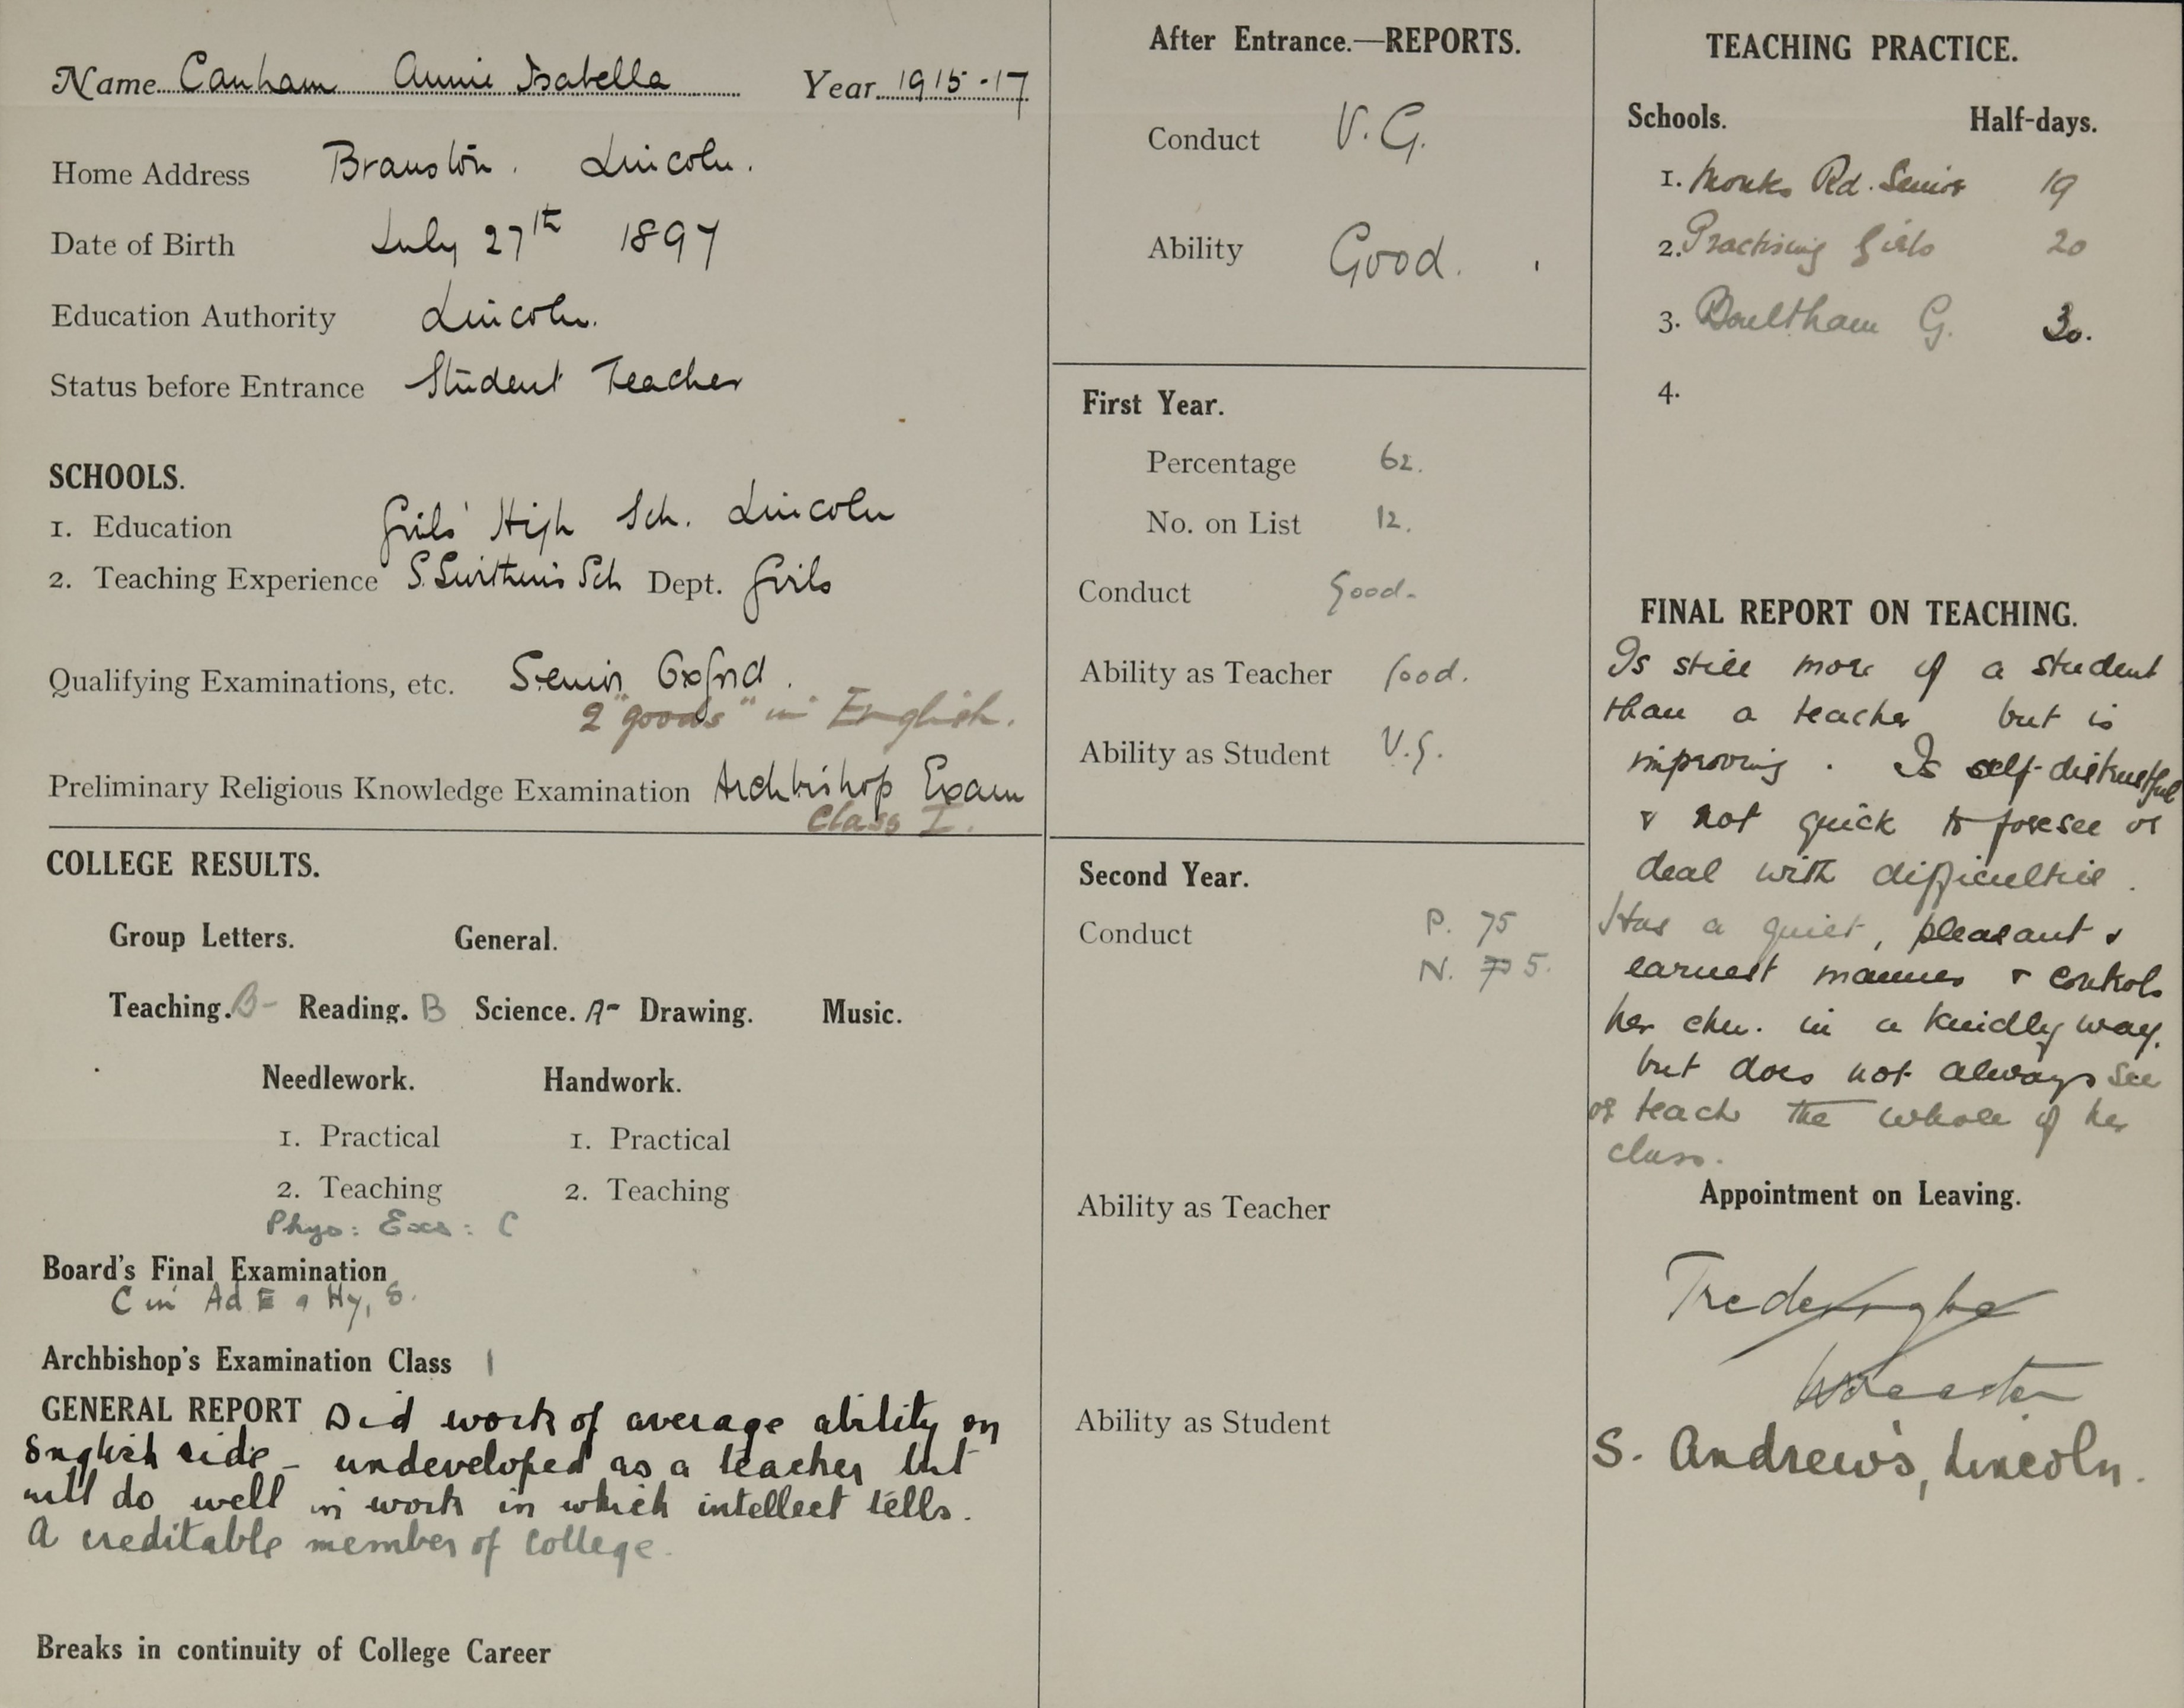 Name Canham Annie Isabella Year 1915-17
Home Address Branston. Lincoln.
Date of Birth July 27th 1897
Education Authority Lincoln.
Status before Entrance Student Teacher
SCHOOLS.
1. Education Girls' High Sch. Lincoln
2. Teaching Experience S. Swithin's Sch Dept. Girls
Qualifying Examinations, etc. Senior Oxford.
2 "goods" in English.
Preliminary Religious Knowledge Examination Archbishop Exam
Class I.
COLLEGE RESULTS.
Group Letters. General.
Teaching. B- Reading. B Science. A- Drawing. Music.
Needlework. Handwork.
1. Practical 1. Practical
2. Teaching 2. Teaching
Phys: Exs: C
Board's Final Examination
C in Ad E & Hy, S.
Archbishop's Examination Class 1
GENERAL REPORT Did work of average ability on
English side - undeveloped as a teacher but
will do well in work in which intellect tells.
A creditable member of College.
Breaks in continuity of College Career
After Entrance.—REPORTS.
Conduct V.G.
Ability Good.
First Year.
Percentage 62.
No. on List 12.
Conduct Good.
Ability as Teacher Good.
Ability as Student V.G.
Second Year.
Conduct P. 75
N. 5.
Ability as Teacher
Ability as Student
TEACHING PRACTICE.
Schools. Half-days.
1. Monks Rd. Senior 19
2. Practising Girls 20
3. Boultham G. 30.
4.
FINAL REPORT ON TEACHING.
Is still more of a student
than a teacher but is
improving. Is self-distrustful
& not quick to foresee or
deal with difficulties.
Has a quiet, pleasant &
earnest manner & controls
her chn. in a kindly way.
but does not always see
or teach the whole of her
class.
Appointment on Leaving.
Worcester
S. Andrew's, Lincoln.